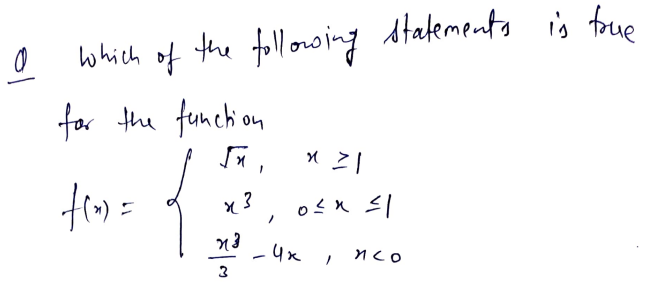 Q which of the following statements is true
for the function
f(x) = { √x , x ≥ 1
x³ , 0 ≤ x ≤ 1
x³/3 - 4x , x < 0